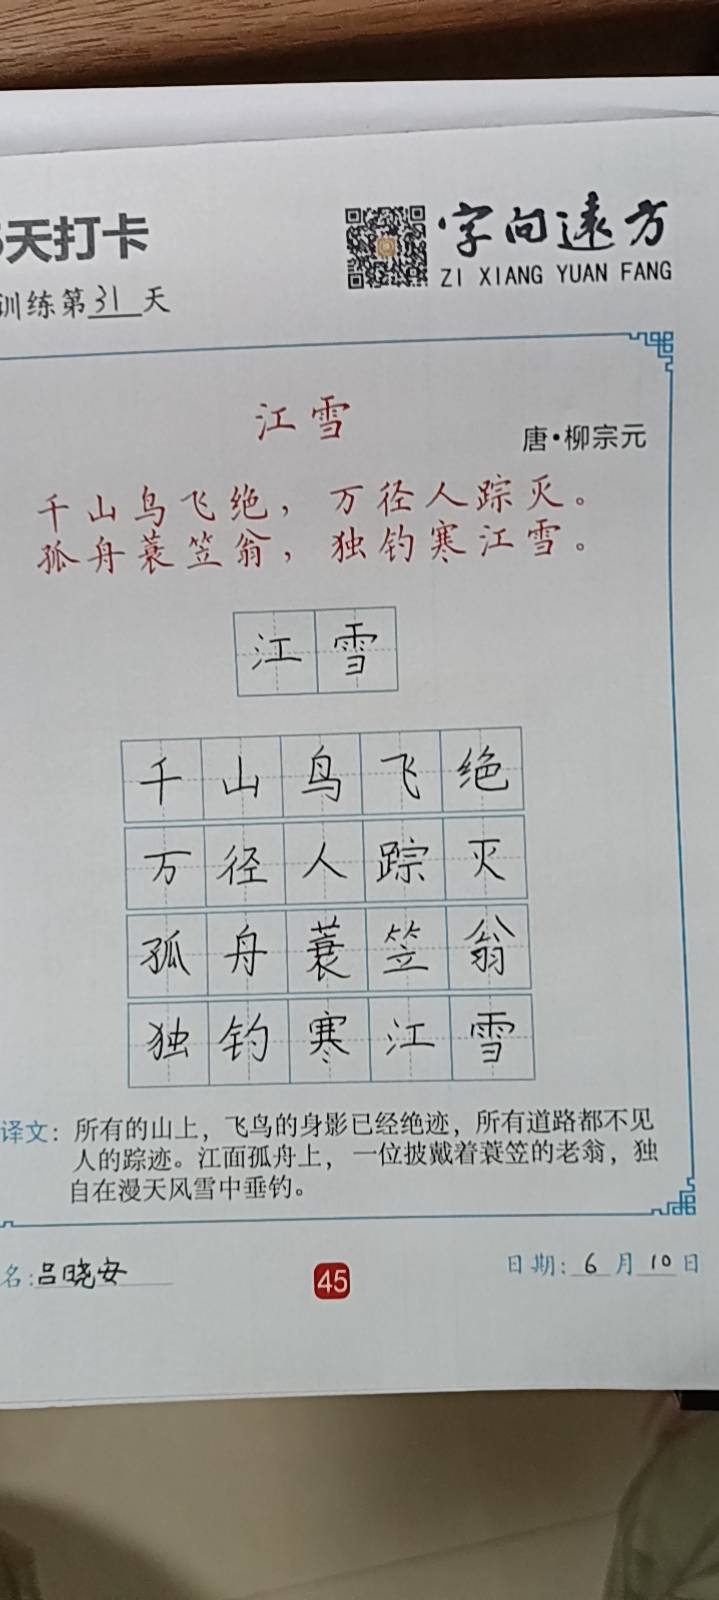 天打卡
字向远方
ZI XIANG YUAN FANG
训练第31天
江雪
唐·柳宗元
千山鸟飞绝，万径人踪灭。
孤舟蓑笠翁，独钓寒江雪。
江雪
千山鸟飞绝
万径人踪灭
孤舟蓑笠翁
独钓寒江雪
译文：所有的山上，飞鸟的身影已经绝迹，所有道路都不见
人的踪迹。江面孤舟上，一位披戴着蓑笠的老翁，独
自在漫天风雪中垂钓。
名：吕晓安
45
日期：6月10日